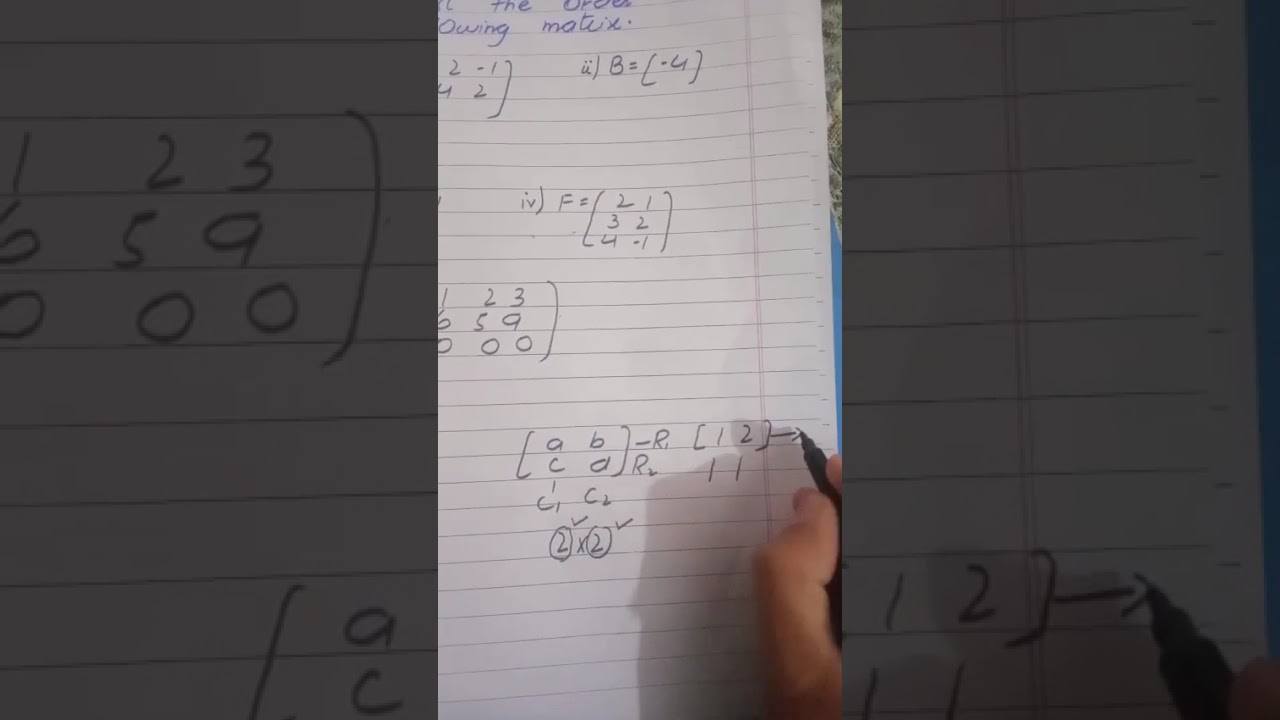 the order
owing matrix.
2 -1] ii) B = [-4]
4 2
iv) F = [2 1
3 2
4 -1]
1 2 3
6 5 9
0 0 0
[a b] -R₁ [1 2] →
c d R₂ 1 1
C₁ C₂
② × ②